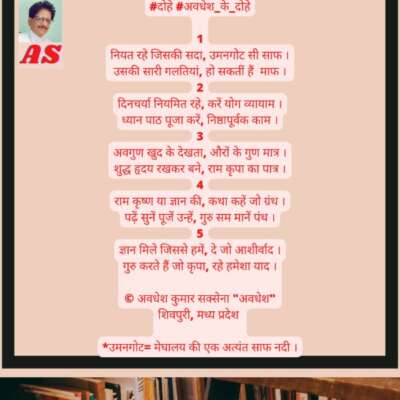 #दोहे #अवधेश_के_दोहे
AS
1
नियत रहे जिसकी सदा, उमनगोट सी साफ ।
उसकी सारी गलतियां, हो सकतीं हैं माफ ।
2
दिनचर्या नियमित रहे, करें योग व्यायाम ।
ध्यान पाठ पूजा करें, निष्ठापूर्वक काम ।
3
अवगुण खुद के देखता, औरों के गुण मात्र ।
शुद्ध हृदय रखकर बने, राम कृपा का पात्र ।
4
राम कृष्ण या ज्ञान की, कथा कहें जो ग्रंथ ।
पढ़ें सुनें पूजें उन्हें, गुरु सम मानें पंथ ।
5
ज्ञान मिले जिससे हमें, दे जो आशीर्वाद ।
गुरु करते हैं जो कृपा, रहे हमेशा याद ।
© अवधेश कुमार सक्सेना "अवधेश"
शिवपुरी, मध्य प्रदेश
*उमनगोट= मेघालय की एक अत्यंत साफ नदी ।